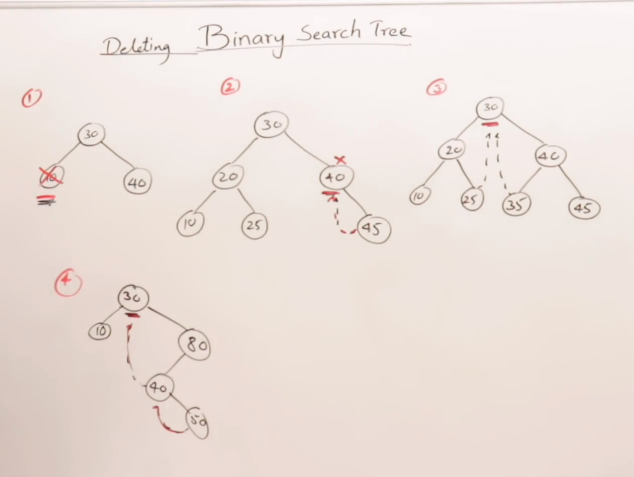 Deleting Binary Search Tree
1 2 3
30
40
30
20 40
10 25 45
30
20 40
10 25 35 45
4
30
10
80
40
50